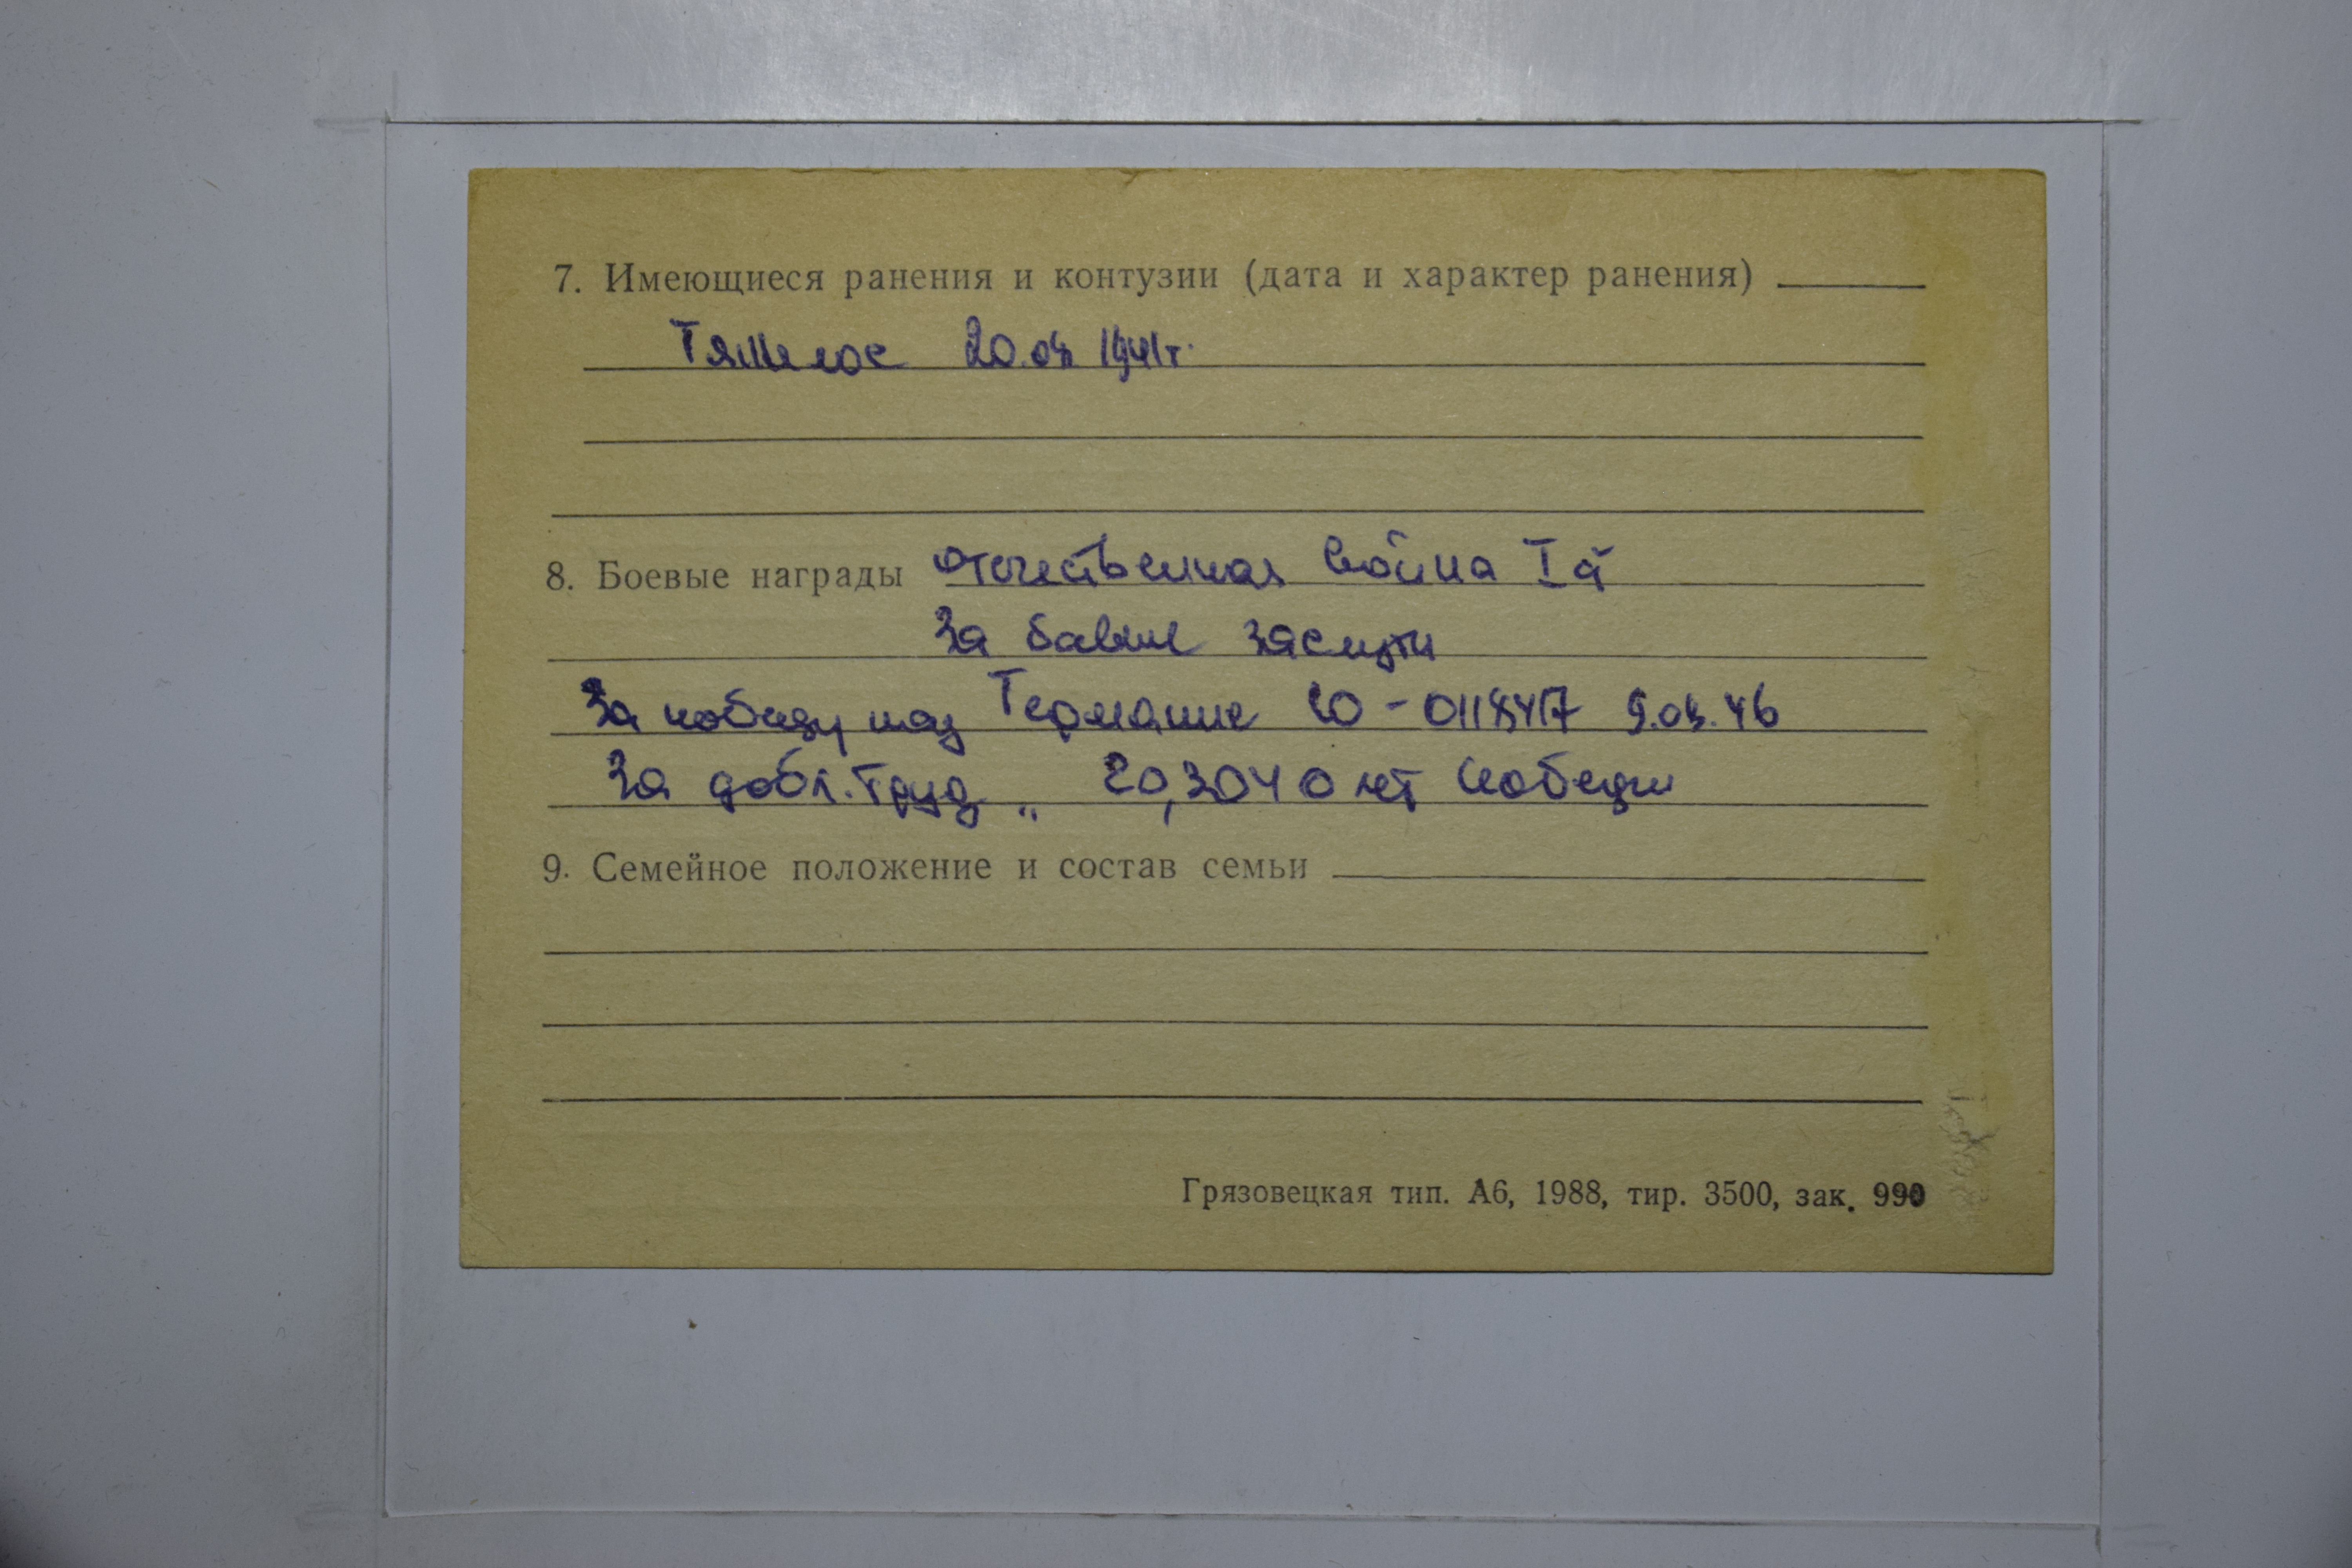 7. Имеющиеся ранения и контузии (дата и характер ранения)
Тяжелое 1941г.
8. Боевые награды Отечественная война I й
За баевые заслуги
За победу над Германие Ю - 0118417 9.04.46
За добл. труд „ 20,30 40 лет Победы
9. Семейное положение и состав семьи
Грязовецкая тип. А6, 1988, тир. 3500, зак. 990